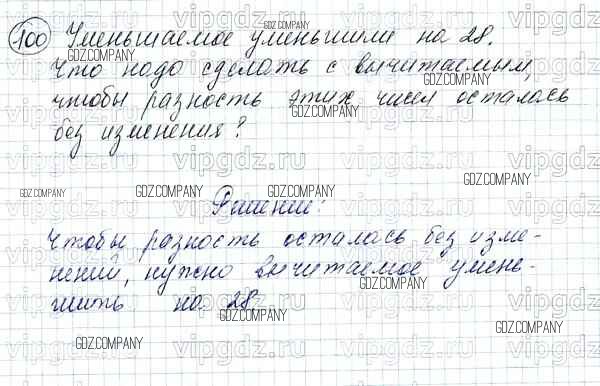 100 Уменьшаемое уменьшили на 28.
Что надо сделать с вычитаемым,
чтобы разность этих чисел осталась
без изменения?
Решение:
Чтобы разность осталась без изме-
нений, нужно вычитаемое умень-
шить на 28
vipgdz.ru
GDZ.COMPANY